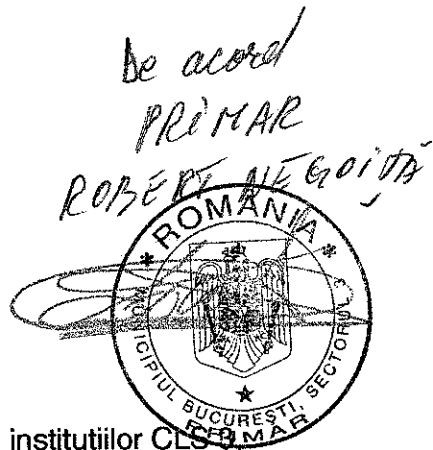 De acord
PRIMAR
ROBERT NEGOIȚĂ
* ROMÂNIA *
MUNICIPIUL BUCUREȘTI, SECTORUL 3
PRIMAR
institutiilor CLS 3